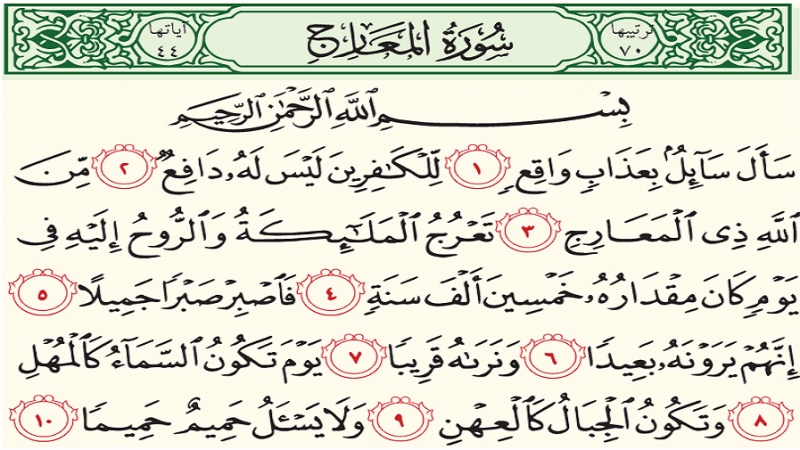 ترتيبها ٧٠ سُورَةُ المَعَارِجِ آياتها ٤٤
بِسْمِ ٱللَّهِ ٱلرَّحْمَٰنِ ٱلرَّحِيمِ
سَأَلَ سَآئِلٌۢ بِعَذَابٍ وَاقِعٍ ١ لِّلْكَٰفِرِينَ لَيْسَ لَهُۥ دَافِعٌ ٢ مِّنَ
ٱللَّهِ ذِى ٱلْمَعَارِجِ ٣ تَعْرُجُ ٱلْمَلَٰٓئِكَةُ وَٱلرُّوحُ إِلَيْهِ فِى
يَوْمٍ كَانَ مِقْدَارُهُۥ خَمْسِينَ أَلْفَ سَنَةٍ ٤ فَٱصْبِرْ صَبْرًا جَمِيلًا ٥
إِنَّهُمْ يَرَوْنَهُۥ بَعِيدًا ٦ وَنَرَىٰهُ قَرِيبًا ٧ يَوْمَ تَكُونُ ٱلسَّمَآءُ كَٱلْمُهْلِ
٨ وَتَكُونُ ٱلْجِبَالُ كَٱلْعِهْنِ ٩ وَلَا يَسْـَٔلُ حَمِيمٌ حَمِيمًا ١٠